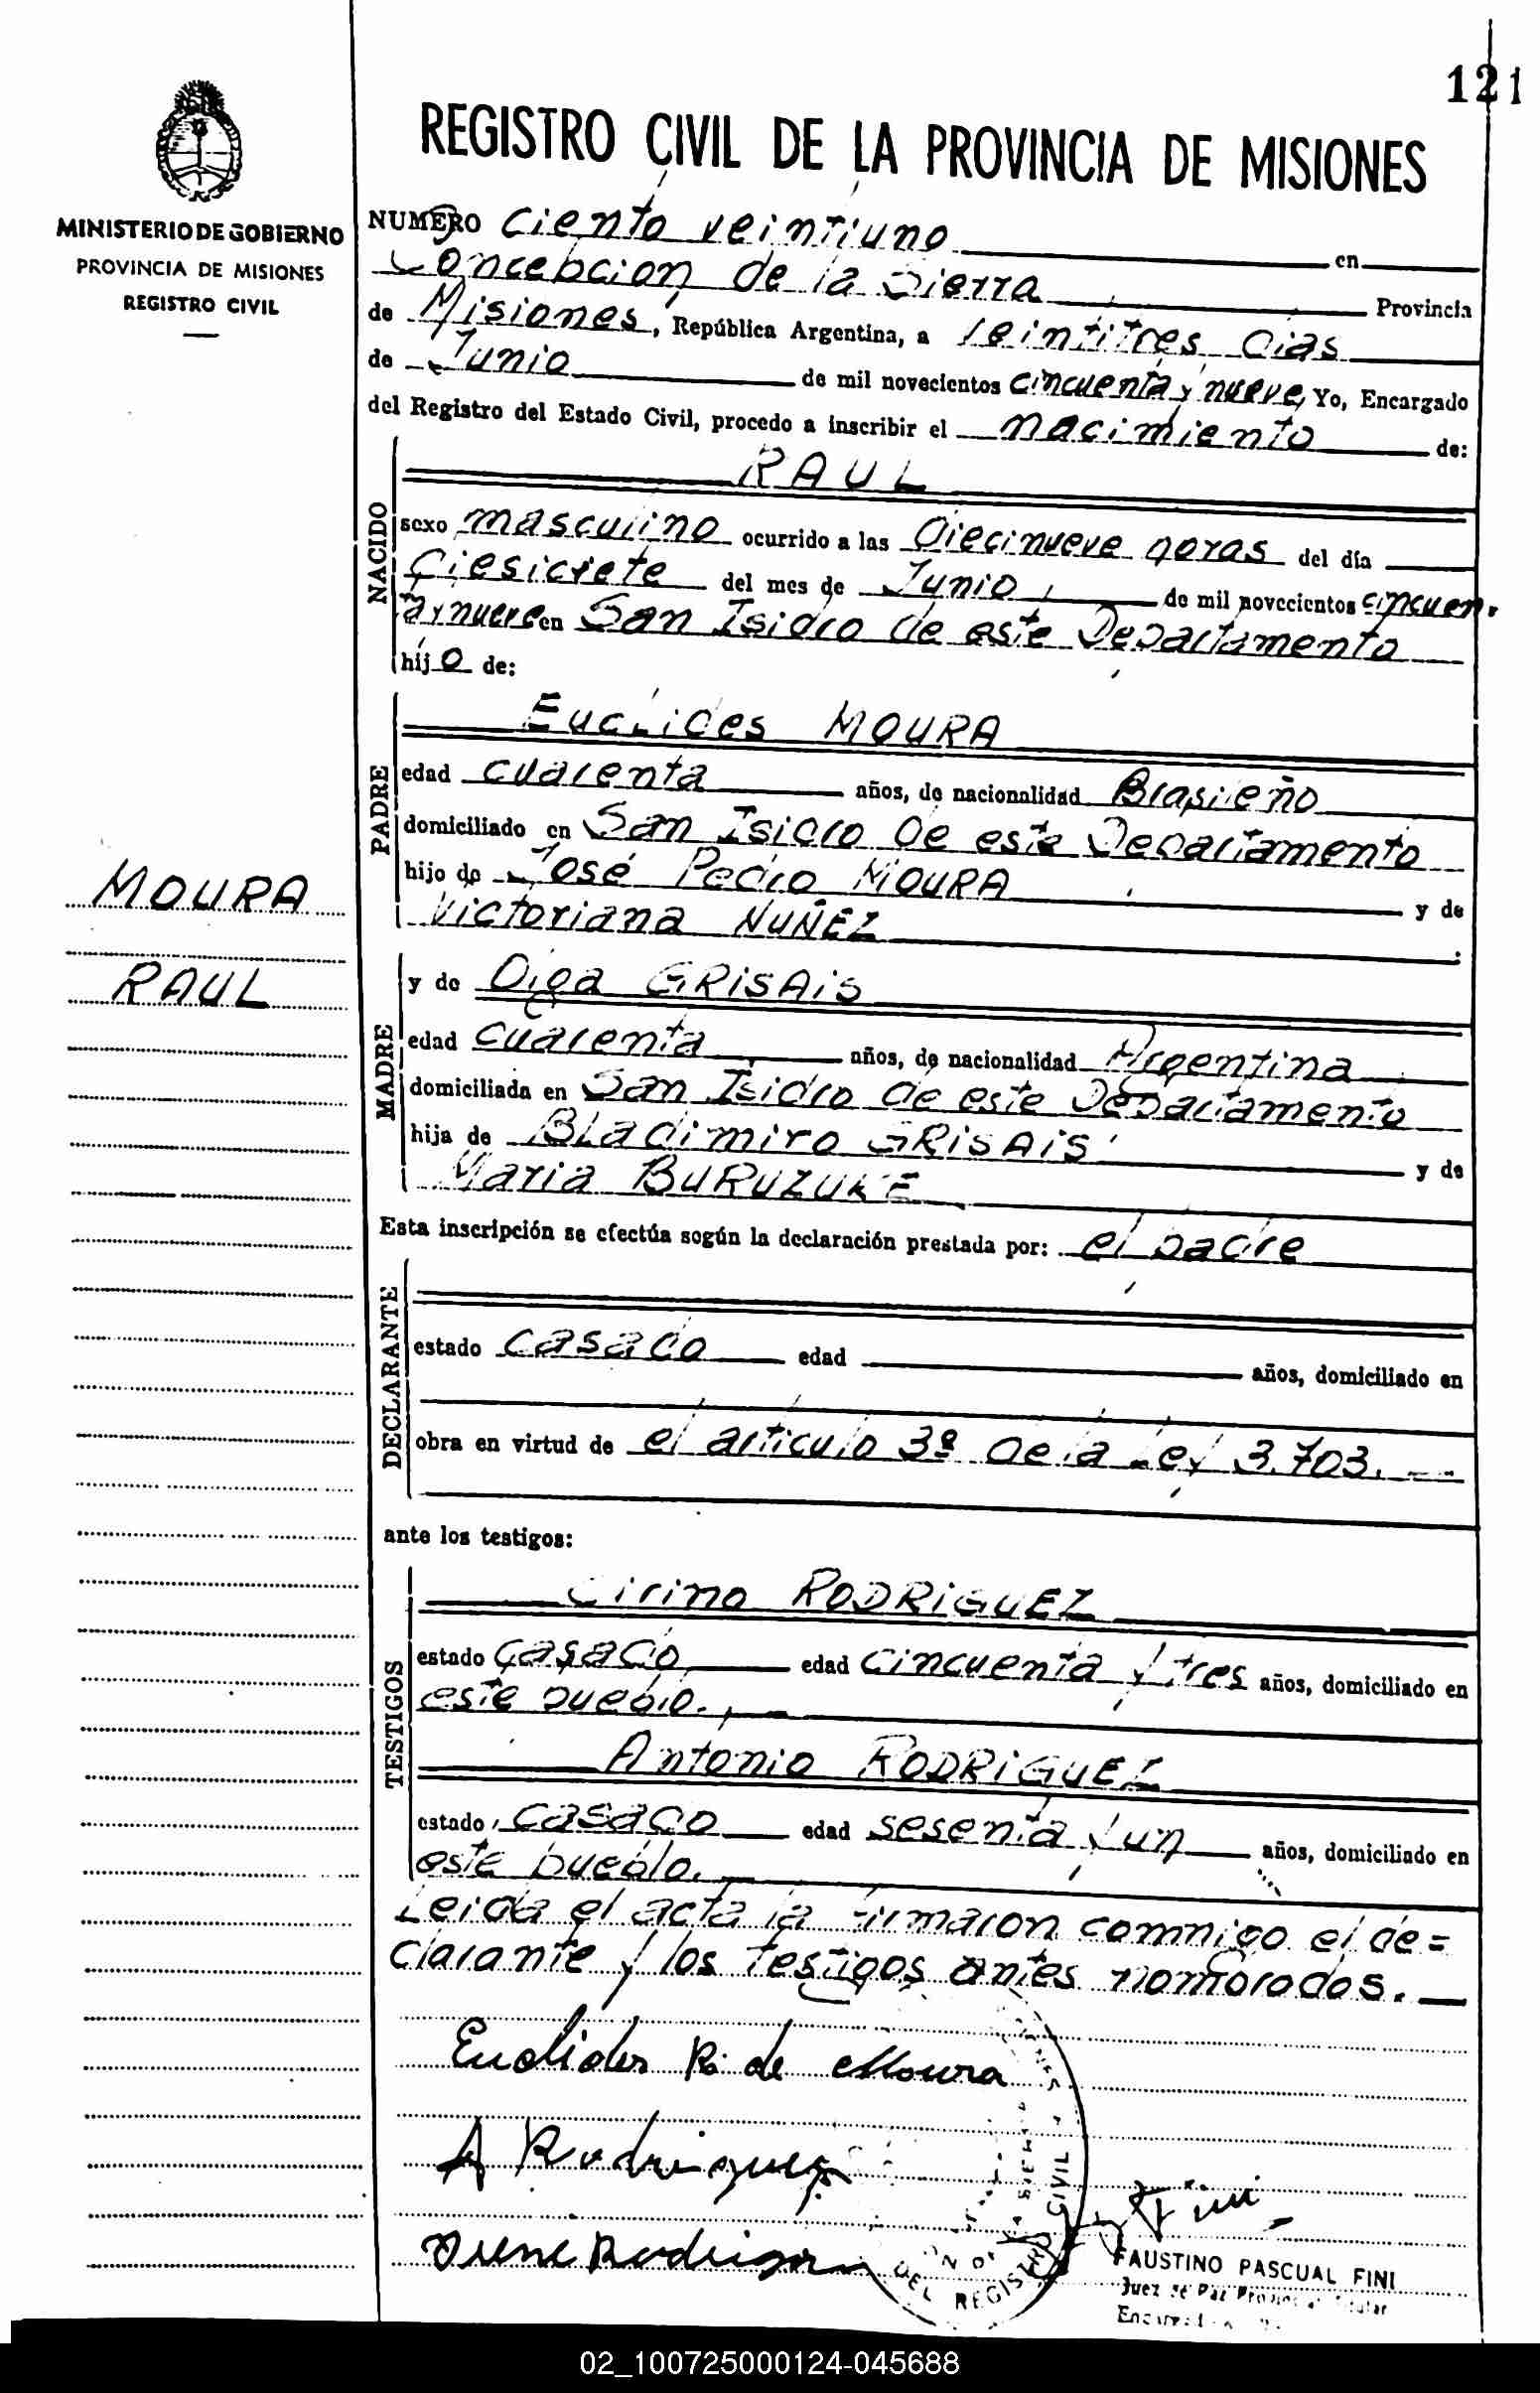 121
REGISTRO CIVIL DE LA PROVINCIA DE MISIONES
MINISTERIO DE GOBIERNO
PROVINCIA DE MISIONES
REGISTRO CIVIL
NUMERO Ciento veintiuno en
Concepcion de la Sierra Provincia
de Misiones, República Argentina, a Veintitres dias
de Junio de mil novecientos cincuenta y nueve, Yo, Encargado
del Registro del Estado Civil, procedo a inscribir el nacimiento de:
NACIDO
RAUL
sexo masculino ocurrido a las Diecinueve horas del día
Diesiciete del mes de Junio de mil novecientos cincuen
ta y nueve en San Isidro de este Departamento
hijo de:
PADRE
Euclides MOURA
edad cuarenta años, de nacionalidad Brasileño
domiciliado en San Isidro de este Departamento
hijo de José Pedro MOURA y de
Victoriana NUÑEZ
MOURA
RAUL
MADRE
y de Olga GRISAIS
edad cuarenta años, de nacionalidad Argentina
domiciliada en San Isidro de este Departamento
hija de Bladimiro GRISAIS y de
Maria BURUZUKE
Esta inscripción se efectúa según la declaración prestada por: el padre
DECLARANTE
estado casado edad años, domiciliado en
obra en virtud de el articulo 3º de la Ley 3.703.
ante los testigos:
TESTIGOS
Cirino RODRIGUEZ
estado casado edad cincuenta y tres años, domiciliado en
este pueblo.
Antonio RODRIGUEZ
estado casado edad sesenta y un años, domiciliado en
este pueblo.
Leida el acta la firmaron commigo el de=
clarante y los testigos antes nombrados.
Euclides R. de Moura
A Rodriguez
Rodriguez
Fini
DEL REGISTRO CIVIL
FAUSTINO PASCUAL FINI
Juez de Paz Provincial Titular
02_100725000124-045688